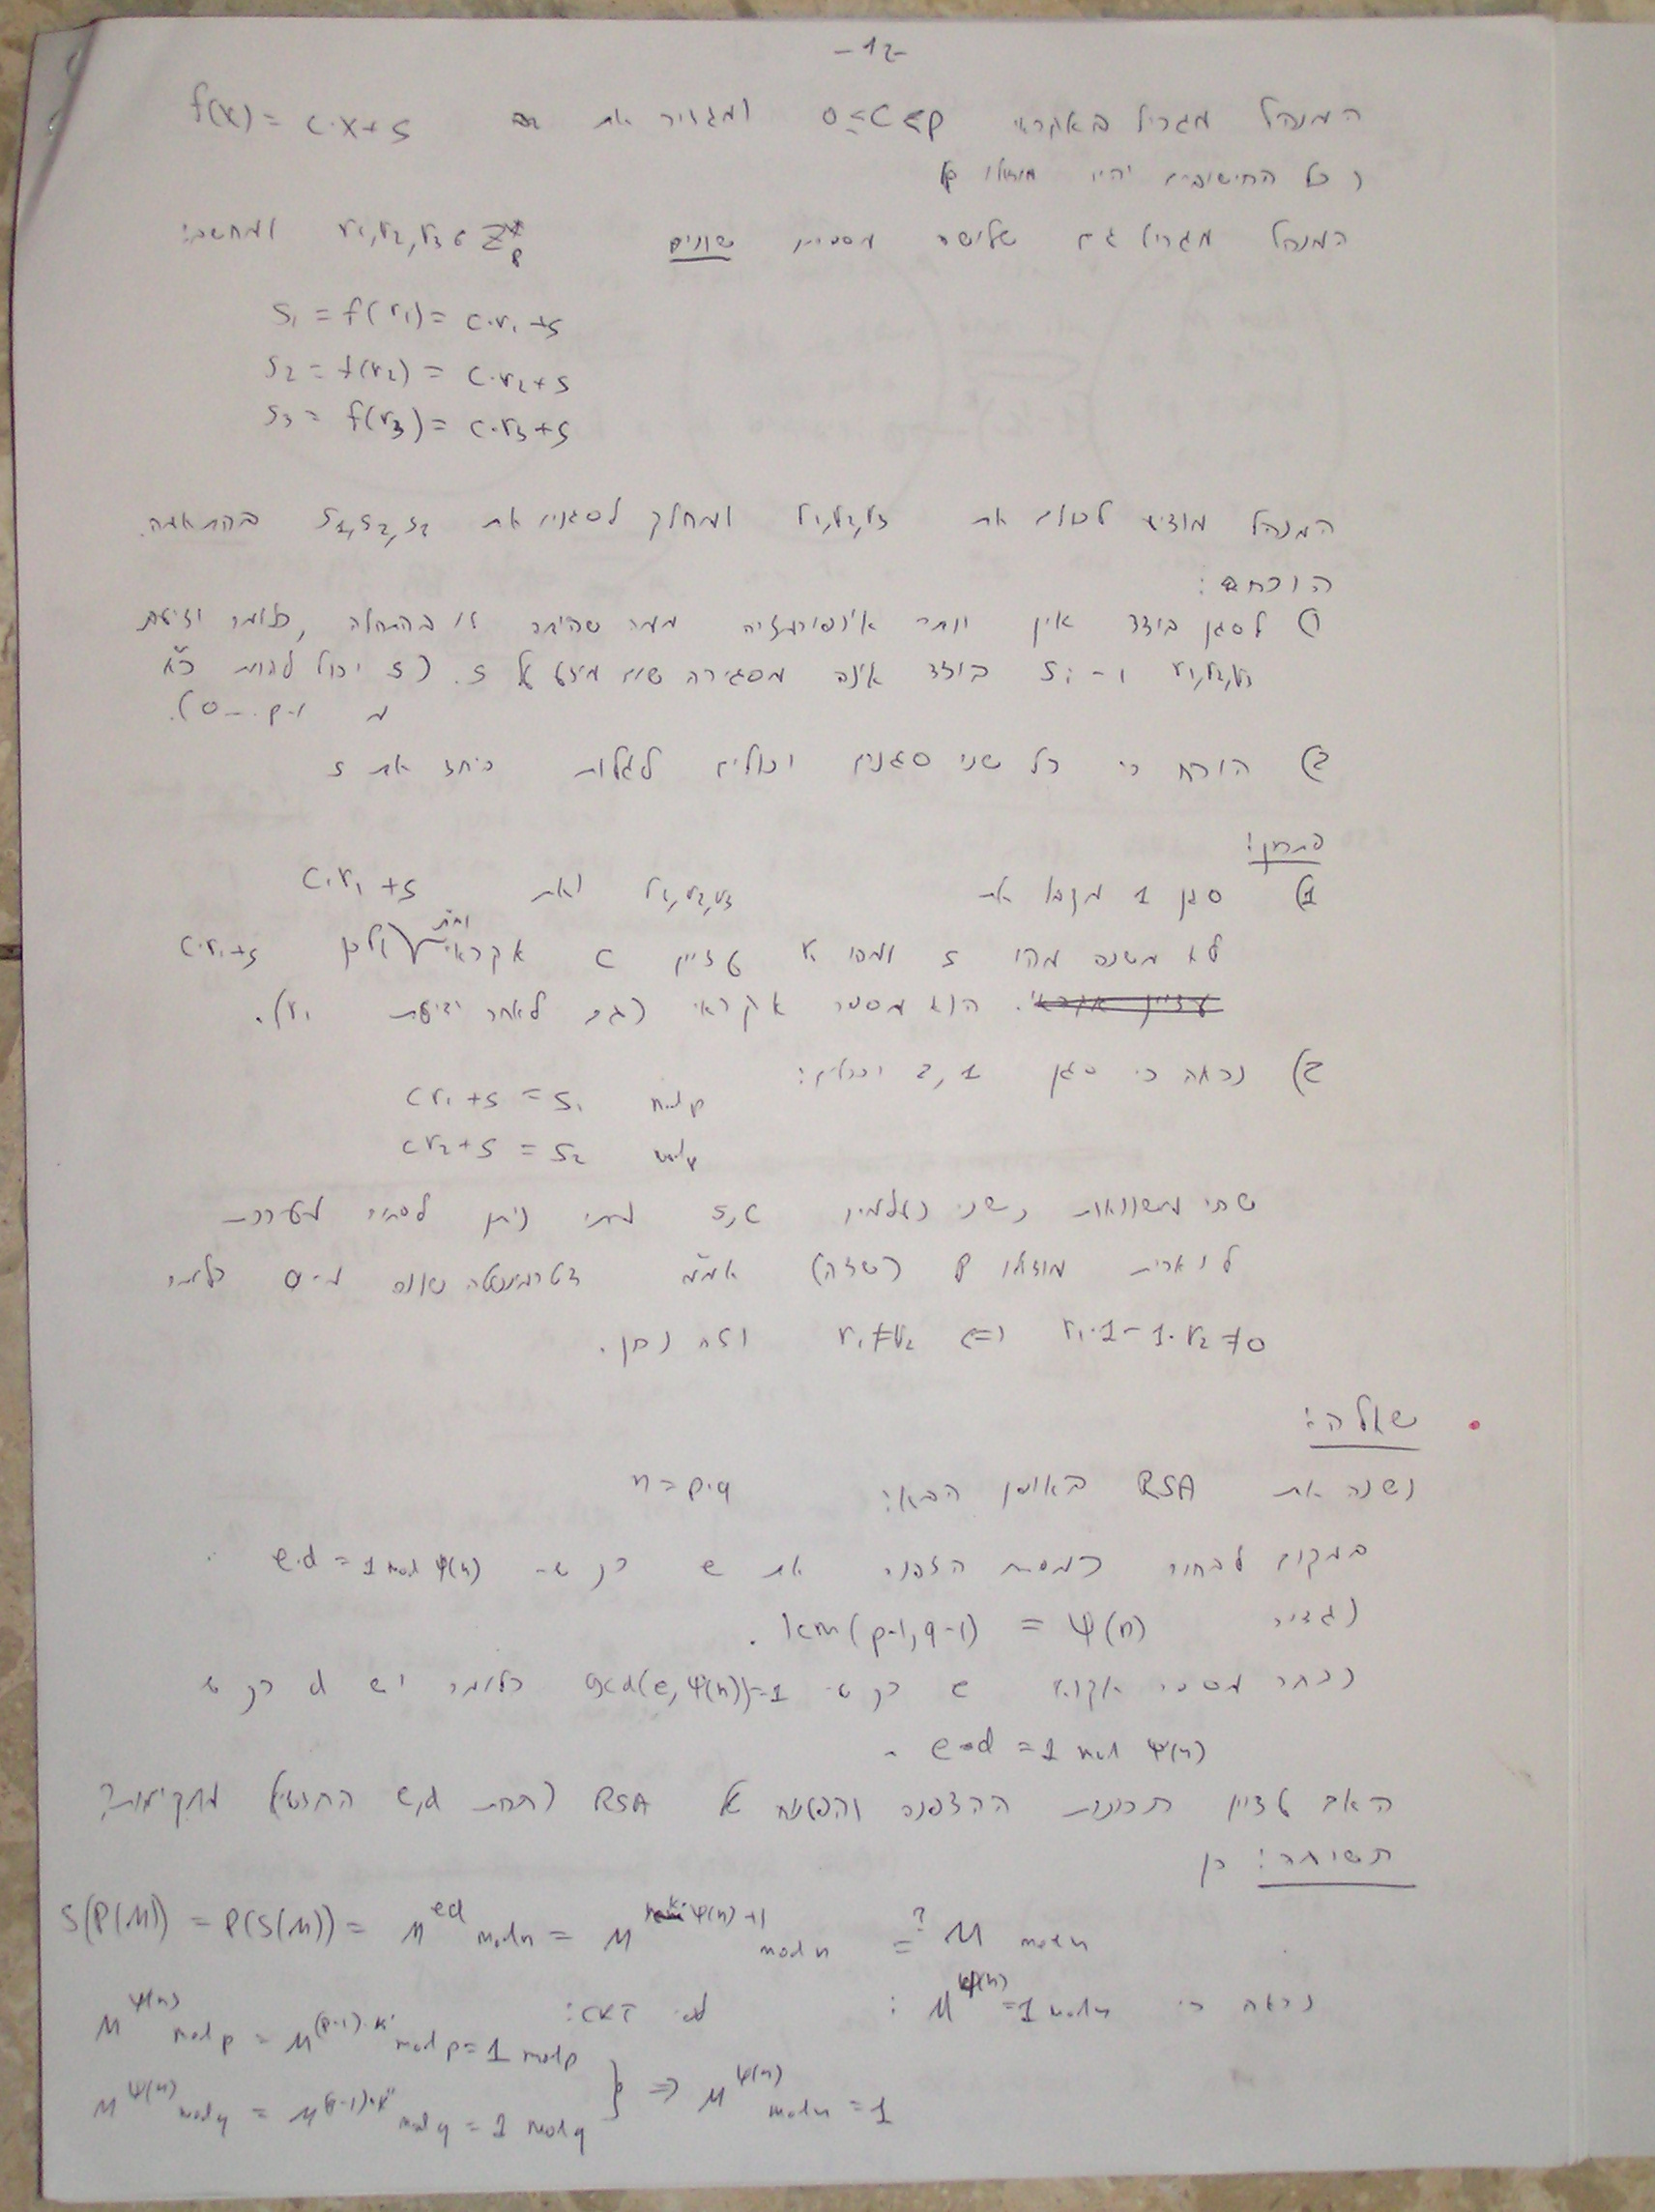 -12-
המנהל מגריל באקראי 0≤c≤p ומגדיר את f(x) = c·x+s
(כל החישובים יהיו מודולו p)
המנהל מגריל גם שלושה מספרים שונים r1,r2,r3 ∈ Z*p ומחשב:
s1 = f(r1) = c·r1+s
s2 = f(r2) = c·r2+s
s3 = f(r3) = c·r3+s
המנהל מודיע לסגנים את r1,r2,r3 ומחלק לסגנים את s1,s2,s3 בהתאמה.
הוכחה:
1) לסגן בודד אין יותר אינפורמציה ממה שהיתה לו בהתחלה, כלומר ידיעת
r1,r2,r3 ו- si בודד אינה מסגירה שום מידע על s. (s יכול להיות כ"א
מ 0...p-1).
2) הוכח כי כל שני סגנים יכולים לגלות ביחד את s
פתרון:
1) סגן 1 מקבל את r1,r2,r3 ואת c·r1+s
לא משנה מהו s ומהו r1 עדיין c אקראי ולכן c·r1+s
עדיין אקראי. הוא מספר אקראי (גם לאחר ידיעת r1).
2) נראה כי סגן 1,2 יכולים:
cr1+s = s1 mod p
cr2+s = s2 mod p
שתי משוואות בשני נעלמים s,c מתי ניתן לפתור מערכת
לינארית מודולו p (שדה) אמ"מ דטרמיננטה שונה מ-0 כלומר
r1·1-1·r2≠0 <=> r1≠r2 וזה נתון.
שאלה:
נשנה את RSA באופן הבא: n=p·q
במקום לבחור כמפתח הצפנה את e כך ש- e·d=1 mod φ(n)
נגדיר lcm(p-1,q-1) = ψ(n).
נבחר מספר אקראי e כך ש- gcd(e,ψ(n))=1 כלומר יש d כך ש
e·d=1 mod ψ(n).
האם עדיין תכונות ההצפנה והפענוח של RSA (תחת e,d החדשים) מתקיימות?
תשובה: כן
S(P(M)) = P(S(M)) = M^ed mod n = M^(k·ψ(n)+1) mod n =? M mod n
נראה כי M^ψ(n) = 1 mod n : לפי CRT:
M^ψ(n) mod p = M^((p-1)·k') mod p = 1 mod p
M^ψ(n) mod q = M^((q-1)·k'') mod q = 1 mod q } => M^ψ(n) mod n = 1